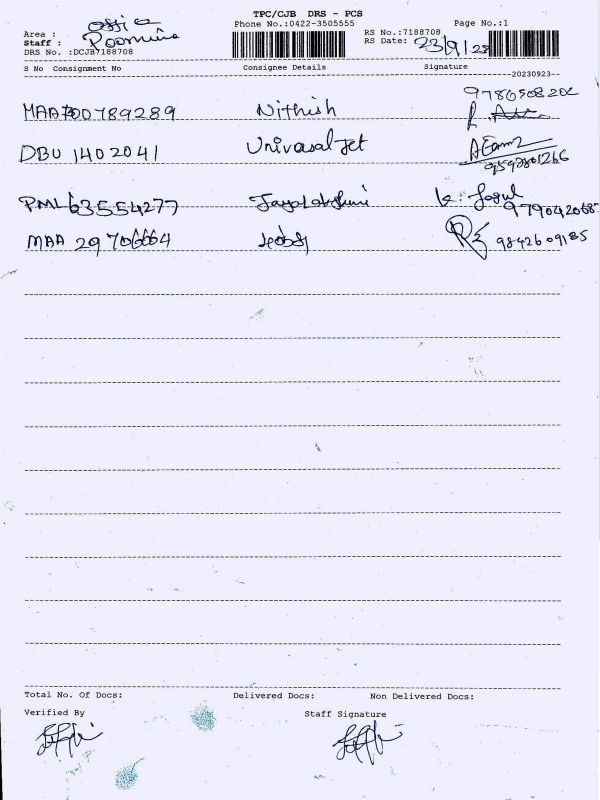 TPC/CJB DRS - PCS
Phone No.:0422-3505555 Page No.:1
Area : office RS No.:7188708
Staff : Poornima RS Date: 23/9/23
DRS No. :DCJB7188708
S No Consignment No Consignee Details Signature
--20230923--
9786508202
MAA700789289 Nithish
DBU 1402041 Univasal Jet
9592801266
PML63554277 Jayalakshmi
979042068
MAA 29706664 9842609185
Total No. Of Docs: Delivered Docs: Non Delivered Docs:
Verified By Staff Signature